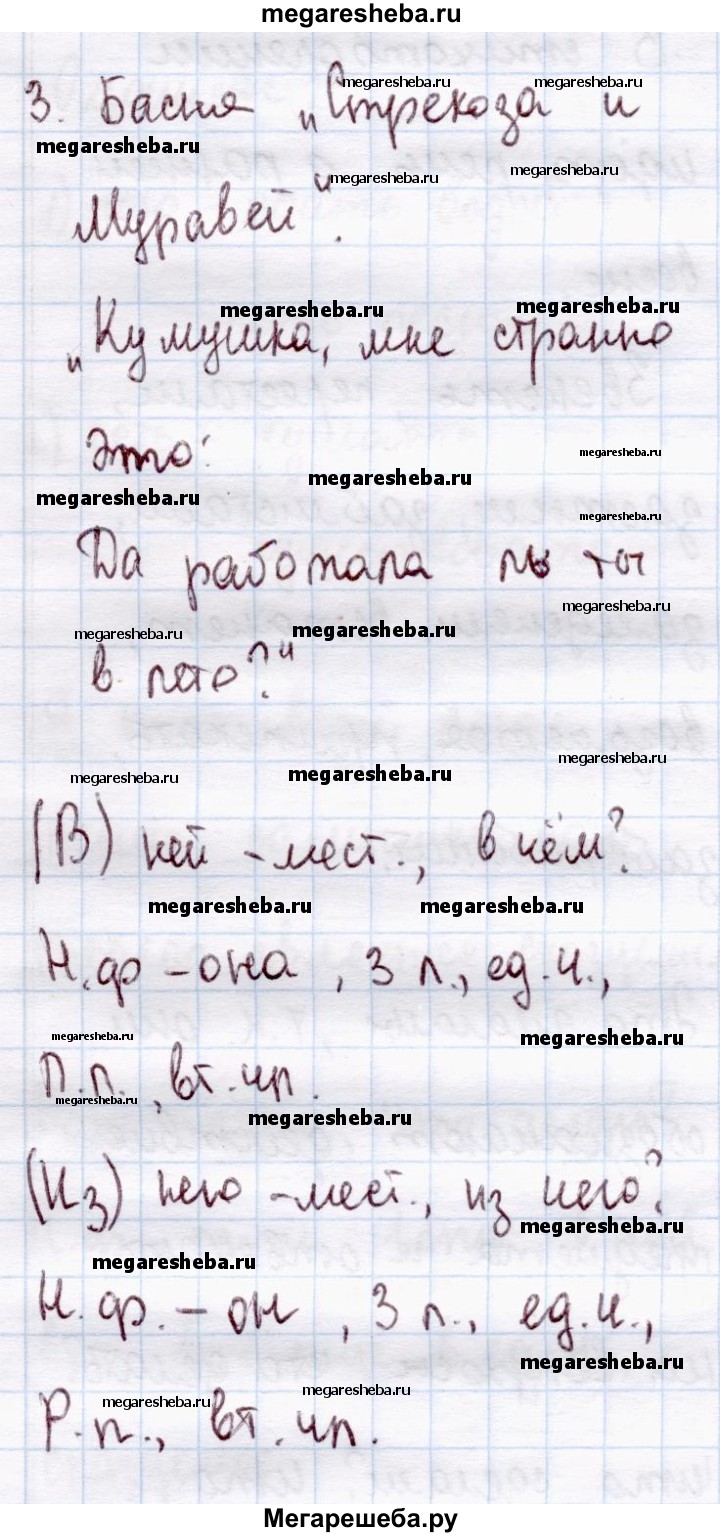 megaresheba.ru
3. Басня „Стрекоза и
Муравей".
„Кумушка, мне странно
это:
Да работала ль ты
в лето?"
(В) ней – мест., в чём?
Н.ф – она, 3 л., ед.ч.,
П.п., вт.чл.
(Из) него – мест., из чего?
Н.ф. – он, 3 л., ед.ч.,
Р.п., вт.чл.
Мегарешеба.ру